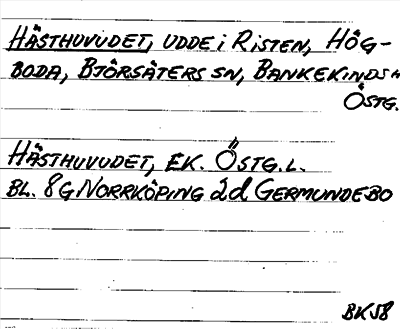 HÄSTHUVUDET, UDDE i RISTEN, HÖG-
BODA, BJÖRSÄTERS SN, BANKEKINDS H
ÖSTG.
HÄSTHUVUDET, EK. ÖSTG. L.
BL. 8G NORRKÖPING d GERMUNDEBO
BK58